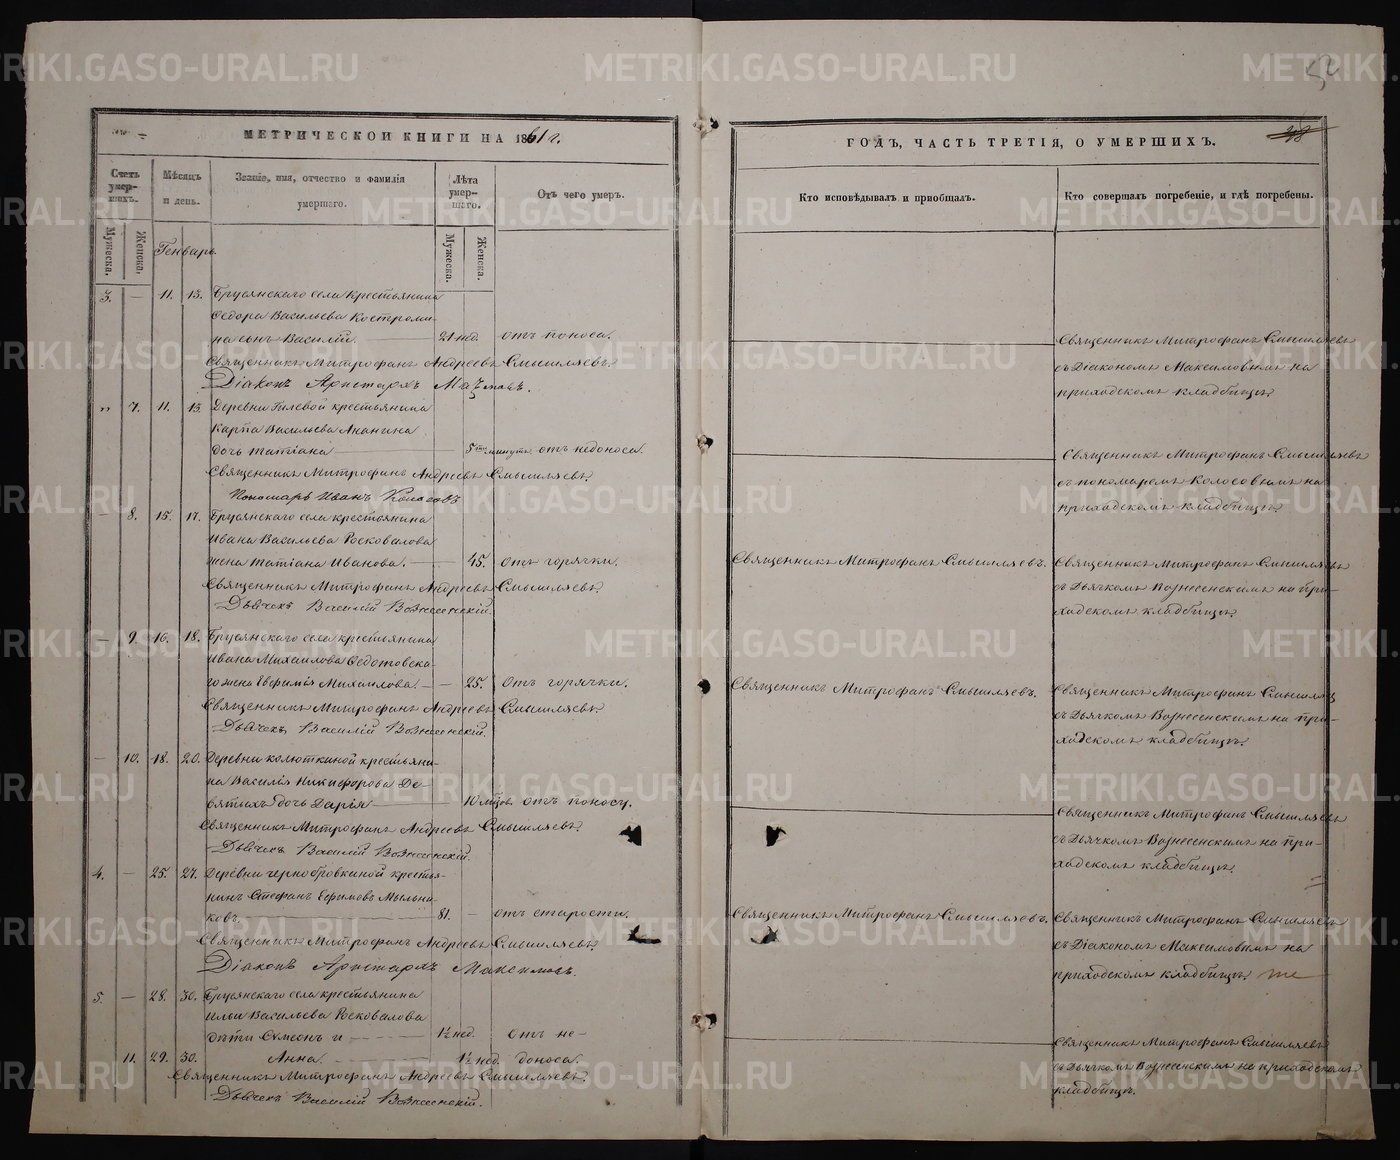 52
МЕТРИЧЕСКОЙ КНИГИ НА 1861 г.
ГОДЪ, ЧАСТЬ ТРЕТІЯ, О УМЕРШИХЪ.
Счетъ умершихъ.
Мужеска.
Женска.
Мѣсяцъ и день.
Генварь.
Званіе, имя, отчество и фамилія умершаго.
Лѣта умершаго.
Мужеска.
Женска.
Отъ чего умеръ.
Кто исповѣдывалъ и приобщалъ.
Кто совершалъ погребеніе, и гдѣ погребены.
3. — 11. 13. Брусянскаго села крестьянина
Ѳедора Васильева Костроми-
на сынъ Василій. 21 нед. отъ поноса.
Священникъ Митрофанъ Андреевъ Смышляевъ.
Діаконъ Аристархъ
Священникъ Митрофанъ Смышляевъ
съ Діакономъ Максимовымъ на
приходскомъ кладбищѣ.
" 7. 11. 13. Деревни Гилевой крестьянина
Карпа Васильева Ананина
дочь Татіана 5ть минутъ отъ недоноса.
Священникъ Митрофанъ Андреевъ Смышляевъ.
Пономарь Иванъ Колосовъ
Священникъ Митрофанъ Смышляевъ
съ пономаремъ Колосовымъ на
приходскомъ кладбищѣ.
— 8. 15. 17. Брусянскаго села крестьянина
Ивана Васильева Росковалова
жена Татіана Иванова. — 45. отъ горячки.
Священникъ Митрофанъ Андреевъ Смышляевъ.
Дьячекъ Василій Вознесенскій.
Священникъ Митрофанъ Смышляевъ.
Священникъ Митрофанъ Смышляевъ
съ Дьячкомъ Вознесенскимъ на при-
ходскомъ кладбищѣ.
— 9. 16. 18. Брусянскаго села крестьянина
Ивана Михаилова Ѳедотовска-
го жена Евфимія Михаилова. — 25. отъ горячки.
Священникъ Митрофанъ Андреевъ Смышляевъ.
Дьячекъ Василій Вознесенскій.
Священникъ Митрофанъ Смышляевъ.
Священникъ Митрофанъ Смышляев
съ Дьячкомъ Вознесенскимъ на при-
ходскомъ кладбищѣ.
— 10. 18. 20. Деревни Колюткиной крестьяни-
на Василія Никифорова Де-
вятыхъ дочь Дарія 10 мѣсцов. отъ поносу.
Священникъ Митрофанъ Андреевъ Смышляевъ.
Дьячекъ Василій Вознесенскій.
Священникъ Митрофанъ Смышляевъ
съ Дьячкомъ Вознесенскимъ на при-
ходскомъ кладбищѣ.
4. — 25. 27. Деревни Чернобровкиной крестья-
нинъ Стефанъ Ефимовъ Мыльни-
ковъ. 81. — отъ старости.
Священникъ Митрофанъ Андреевъ Смышляевъ.
Діаконъ Аристархъ Максимовъ.
Священникъ Митрофанъ Смышляевъ.
Священникъ Митрофанъ Смышляевъ
съ Діакономъ Максимовымъ на
приходскомъ кладбищѣ.
5. — 28. 30. Брусянскаго села крестьянина
Ильи Васильева Росковалова
дѣти Сѵмеонъ и 1½ нед. отъ не-
11. 29. 30. Анна. 1½ нед. доноса.
Священникъ Митрофанъ Андреевъ Смышляевъ.
Дьячекъ Василій Вознесенскій.
Священникъ Митрофанъ Смышляевъ
съ Дьячкомъ Вознесенскимъ на приходскомъ
кладбищѣ.
METRIKI.GASO-URAL.RU